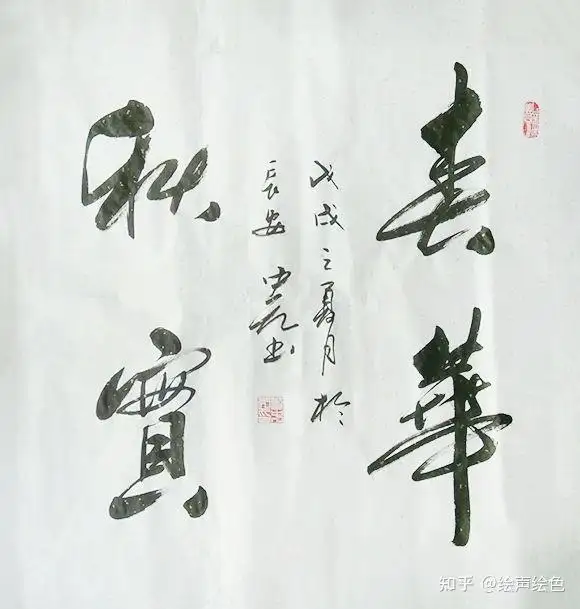 春華
秋實
戊戌之夏月於
長安 忠亮书
知乎 @绘声绘色